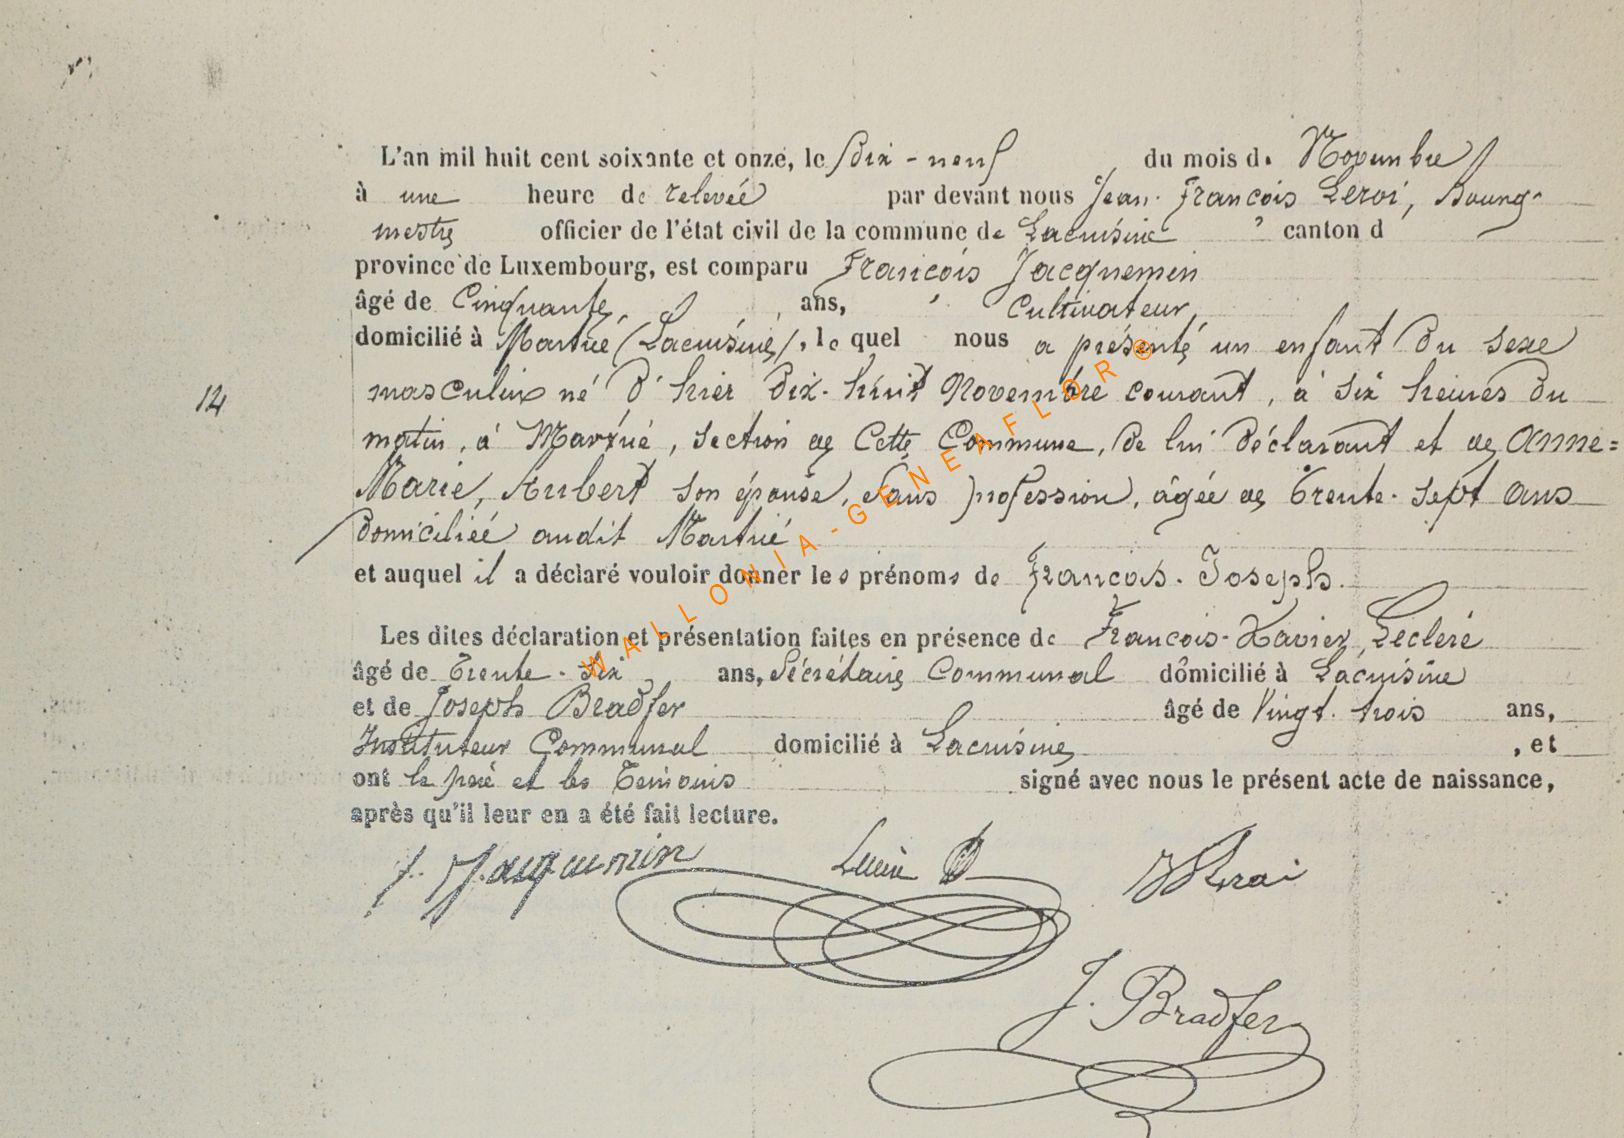 L'an mil huit cent soixante et onze, le dix-neuf du mois de Novembre
à une heure de relevée par devant nous Jean-François Leroi, Bourg-
mestre officier de l'état civil de la commune de Lacuisine canton d
province de Luxembourg, est comparu François Jacquemin
âgé de Cinquante ans, Cultivateur
domicilié à Martué (Lacuisine), le quel nous a présenté un enfant du sexe
masculin né d'hier dix-huit Novembre courant, à six heures du
12 matin, à Martué, section de Cette Commune, de lui déclarant et de Anne=
Marie, Hubert son épouse, sans profession, âgée de Trente-sept ans
domiciliée audit Martué
et auquel il a déclaré vouloir donner les prénoms de François-Joseph.
Les dites déclaration et présentation faites en présence de François-Xavier Lecléré
âgé de Trente-six ans, Sécrétaire Communal domicilié à Lacuisine
et de Joseph Bradfer âgé de Vingt-trois ans,
Instituteur Communal domicilié à Lacuisine , et
ont le père et les Témouis signé avec nous le présent acte de naissance,
après qu'il leur en a été fait lecture.
f. Jacquemin
J. Bradfer
WALLONIA-GENEAFLORE